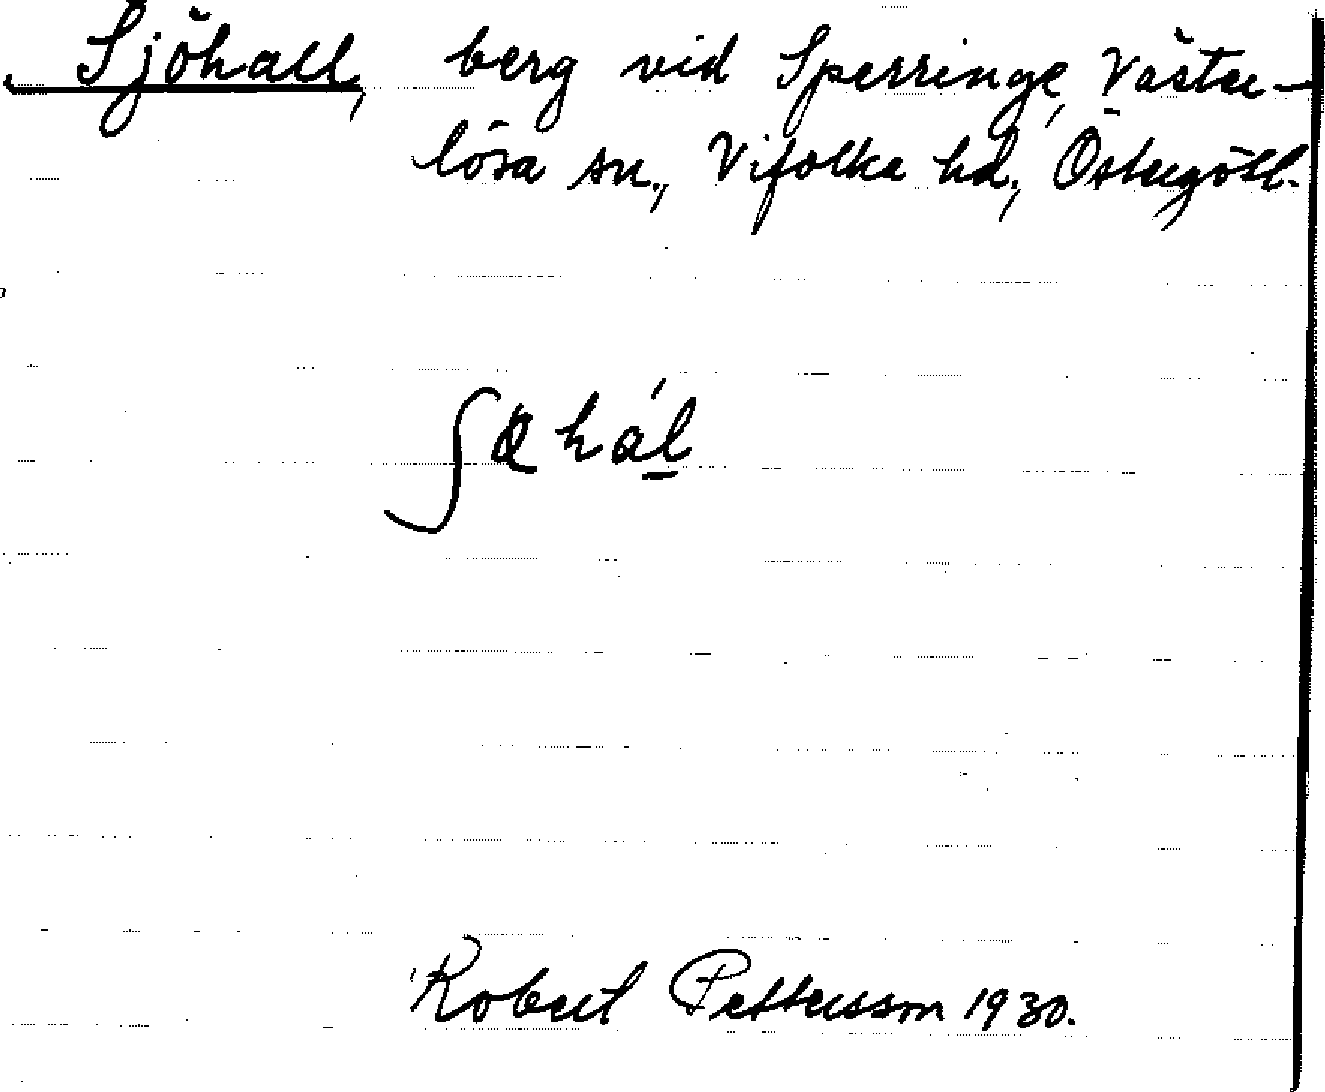 Sjöhall, berg vid Sperringe, Väster-
lösa sn., Vifolka hd., Östergötl.
Robert Pettersson 1930.